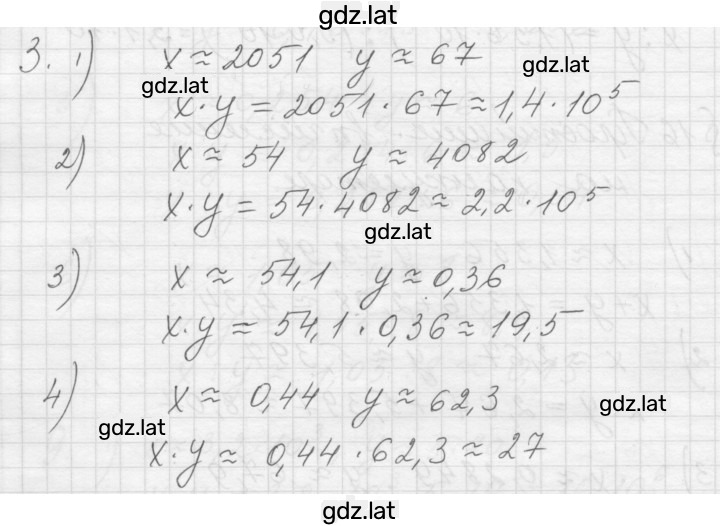 gdz.lat
3. 1) x ≈ 2051 y ≈ 67
gdz.lat
gdz.lat
x·y = 2051·67 ≈ 1,4·10⁵
2) x ≈ 54 y ≈ 4082
x·y = 54·4082 ≈ 2,2·10⁵
gdz.lat
3) x ≈ 54,1 y ≈ 0,36
x·y ≈ 54,1·0,36 ≈ 19,5
4) x ≈ 0,44 y ≈ 62,3
gdz.lat
gdz.lat
x·y ≈ 0,44·62,3 ≈ 27
gdz.lat